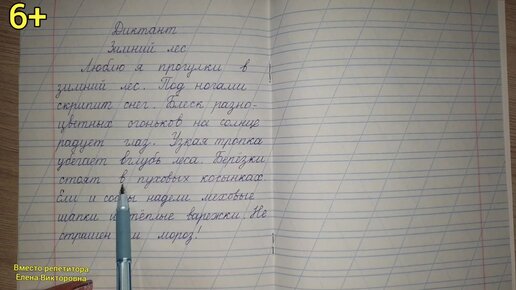 6+
Диктант
Зимний лес
Люблю я прогулки в
зимний лес. Под ногами
скрипит снег. Блеск разно-
цветных огоньков на солнце
радует глаз. Узкая тропка
убегает вглубь леса. Берёзки
стоят в пуховых косынках.
Ели и сосны надели меховые
шапки и тёплые варежки. Не
страшен им мороз!
Вместо репетитора
Елена Викторовна